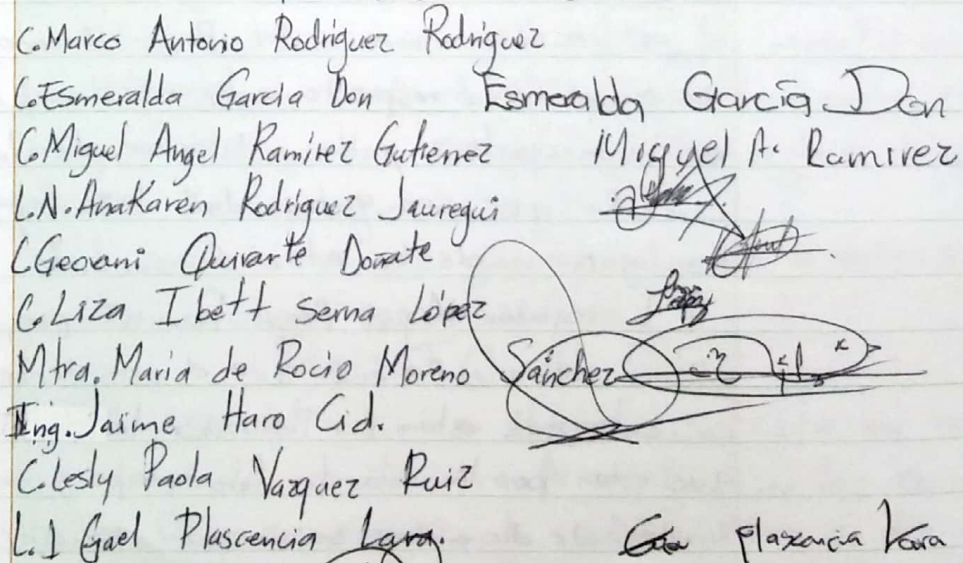 C. Marco Antonio Rodriguez Rodriguez
C. Esmeralda Garcia Don Esmeralda García Don
C. Miguel Angel Ramirez Gutierrez Miguel A. Ramirez
L.N. AnaKaren Rodriguez Jauregui
C Geovani Quirarte Doñate
C. Liza Ibett Serna López
Mtra. Maria de Rocio Moreno Sánchez
Ing. Jaime Haro Cid.
C. Lesly Paola Vazquez Ruiz
L.I Gael Plascencia Lara. Plascencia Lara